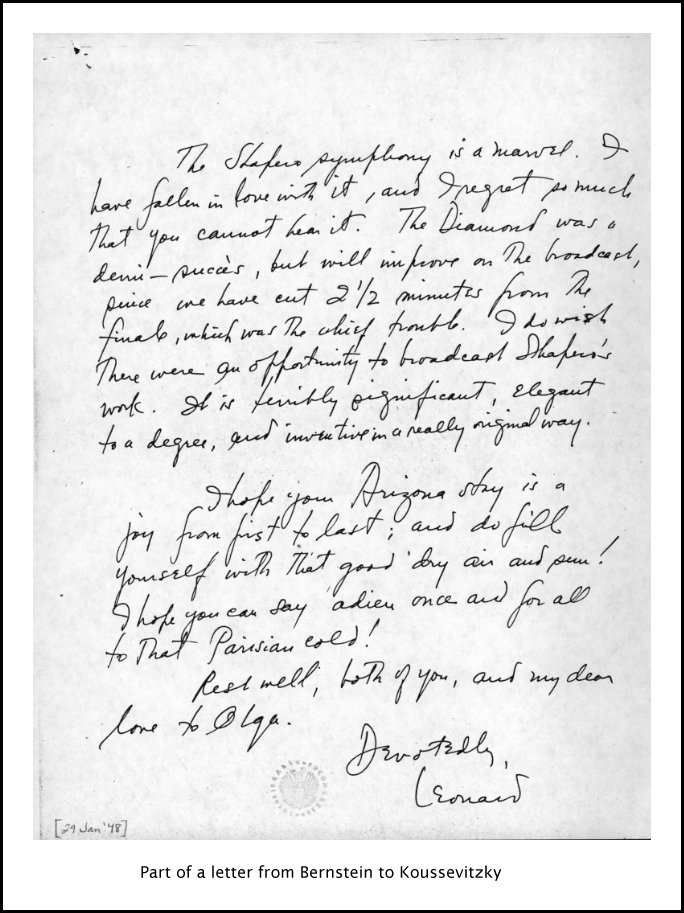 The Shapero symphony is a marvel. I
have fallen in love with it, and I regret so much
that you cannot hear it. The Diamond was a
demi-succès, but will improve on the broadcast,
since we have cut 2 1/2 minutes from the
finale, which was the chief trouble. I do wish
there were an opportunity to broadcast Shapero's
work. It is terribly significant, elegant
to a degree, and inventive in a really original way.
I hope your Arizona stay is a
joy from first to last; and do fill
yourself with that good dry air and sun!
I hope you can say adieu once and for all
to that Parisian cold!
Rest well, both of you, and my dear
love to Olga.
Devotedly,
Leonard
[29 Jan '48]
Part of a letter from Bernstein to Koussevitzky